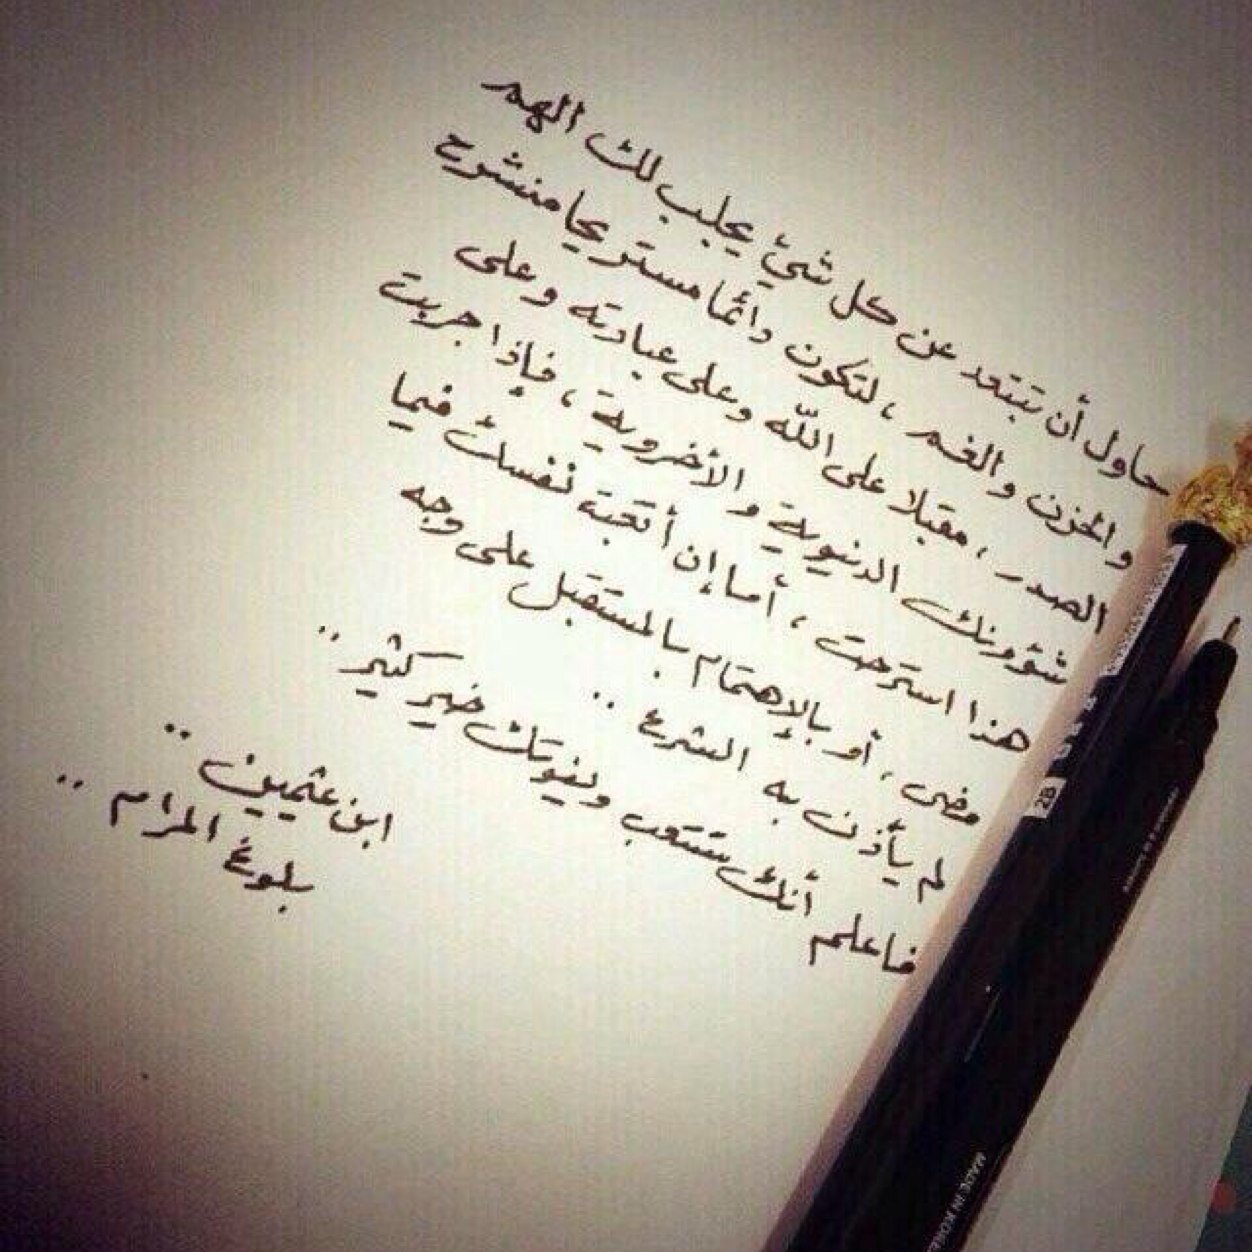 حاول أن تبتعد عن كل شيء يجلب لك الهم
والحزن والغم ، لتكون دائما مستريحا منشرح
الصدر ، مقبلا على الله وعلى عبادته وعلى
شؤونك الدنيوية والأخروية ، فإذا جربت
هذا استرحت ، أما إن أتعبت نفسك فيما
مضى ، أو بالإهتمام بالمستقبل على وجه
لم يأذن به الشرع ..
فاعلم أنك ستتعب ويفوتك خير كثير ..
ابن عثيمين ..
بلوغ المرام ..
2B
MADE IN KOREA